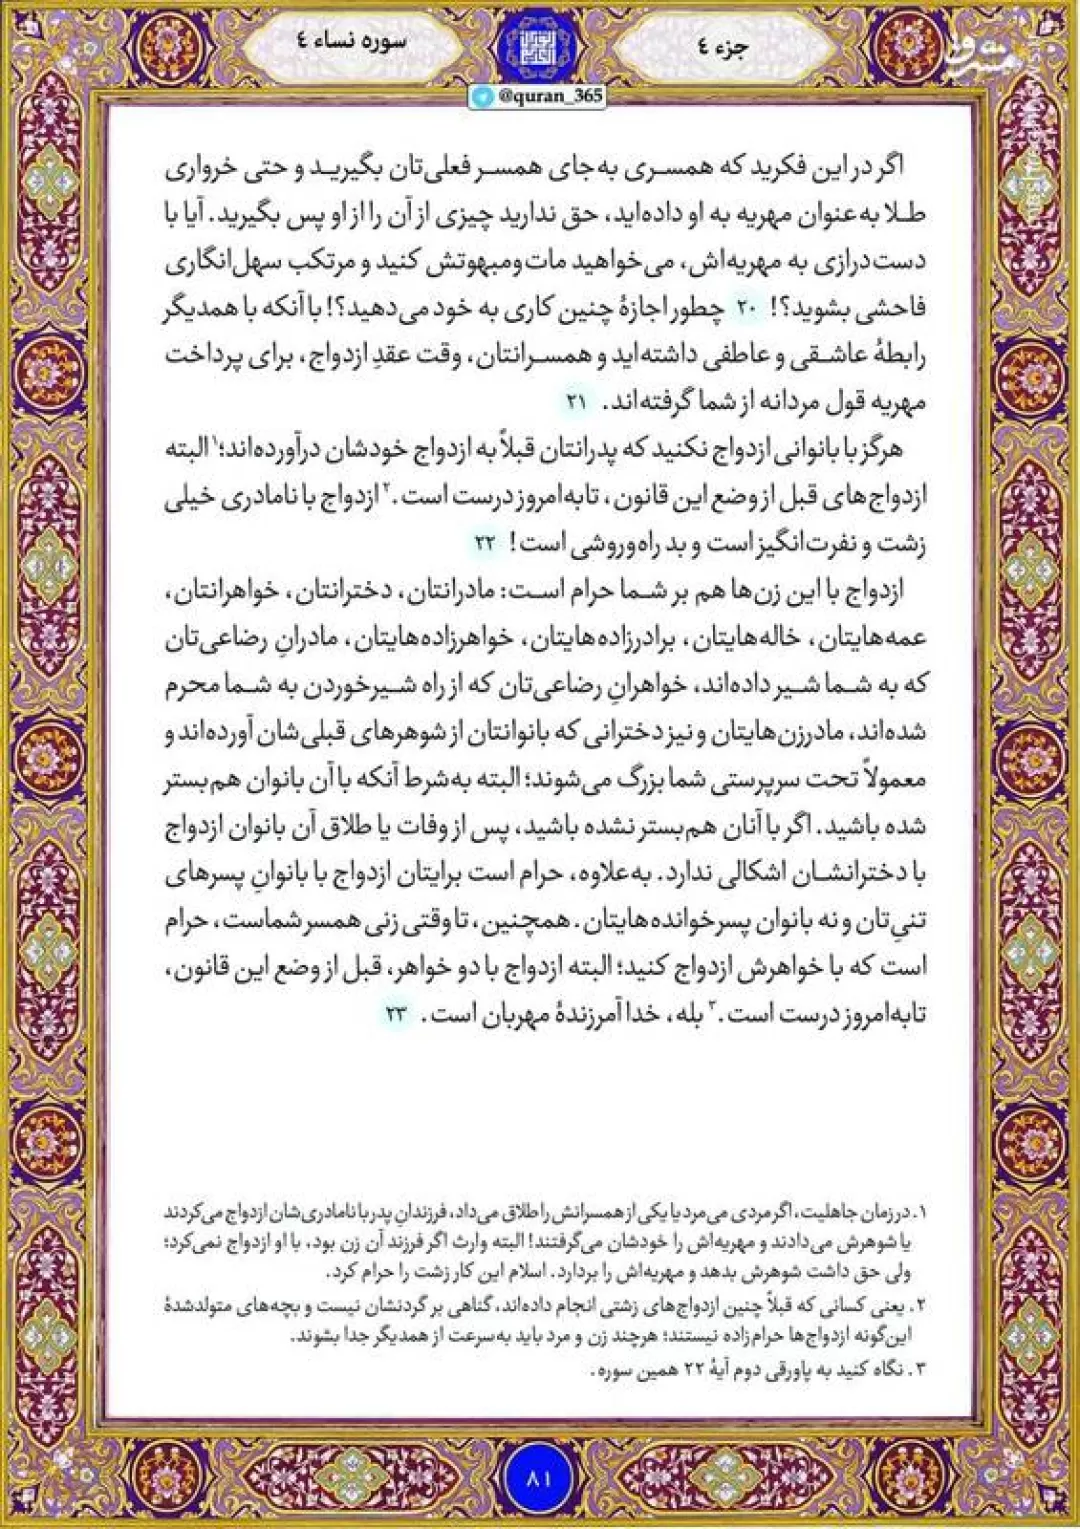 جزء ٤
سوره نساء ٤
@quran_365
اگر در این فکرید که همسری به‌جای همسر فعلی‌تان بگیرید و حتی خرواری
طلا به‌عنوان مهریه به او داده‌اید، حق ندارید چیزی از آن را از او پس بگیرید. آیا با
دست‌درازی به مهریه‌اش، می‌خواهید مات‌ومبهوتش کنید و مرتکب سهل‌انگاری
فاحشی بشوید؟! ۲۰ چطور اجازهٔ چنین کاری به خود می‌دهید؟! با آنکه با همدیگر
رابطهٔ عاشقی و عاطفی داشته‌اید و همسرانتان، وقت عقدِ ازدواج، برای پرداخت
مهریه قول مردانه از شما گرفته‌اند. ۲۱
هرگز با بانوانی ازدواج نکنید که پدرانتان قبلاً به ازدواج خودشان درآورده‌اند؛۱ البته
ازدواج‌های قبل از وضع این قانون، تابه‌امروز درست است.۲ ازدواج با نامادری خیلی
زشت و نفرت‌انگیز است و بد راه‌وروشی است! ۲۲
ازدواج با این زن‌ها هم بر شما حرام است: مادرانتان، دخترانتان، خواهرانتان،
عمه‌هایتان، خاله‌هایتان، برادرزاده‌هایتان، خواهرزاده‌هایتان، مادرانِ رضاعی‌تان
که به شما شیر داده‌اند، خواهرانِ رضاعی‌تان که از راه شیرخوردن به شما محرم
شده‌اند، مادرزن‌هایتان و نیز دخترانی که بانوانتان از شوهرهای قبلی‌شان آورده‌اند و
معمولاً تحت سرپرستی شما بزرگ می‌شوند؛ البته به‌شرط آنکه با آن بانوان هم‌بستر
شده باشید. اگر با آنان هم‌بستر نشده باشید، پس از وفات یا طلاق آن بانوان ازدواج
با دخترانشان اشکالی ندارد. به‌علاوه، حرام است برایتان ازدواج با بانوانِ پسرهای
تنیِ‌تان و نه بانوان پسرخوانده‌هایتان. همچنین، تا وقتی زنی همسر شماست، حرام
است که با خواهرش ازدواج کنید؛ البته ازدواج با دو خواهر، قبل از وضع این قانون،
تابه‌امروز درست است.۳ بله، خدا آمرزندهٔ مهربان است. ۲۳
۱. در زمان جاهلیت، اگر مردی می‌مرد یا یکی از همسرانش را طلاق می‌داد، فرزندانِ پدر با نامادری‌شان ازدواج می‌کردند
یا شوهرش می‌دادند و مهریه‌اش را خودشان می‌گرفتند! البته وارث اگر فرزند آن زن بود، با او ازدواج نمی‌کرد؛
ولی حق داشت شوهرش بدهد و مهریه‌اش را بردارد. اسلام این کار زشت را حرام کرد.
۲. یعنی کسانی که قبلاً چنین ازدواج‌های زشتی انجام داده‌اند، گناهی بر گردنشان نیست و بچه‌های متولدشدهٔ
این‌گونه ازدواج‌ها حرام‌زاده نیستند؛ هرچند زن و مرد باید به‌سرعت از همدیگر جدا بشوند.
۳. نگاه کنید به پاورقی دوم آیهٔ ۲۲ همین سوره.
۸۱